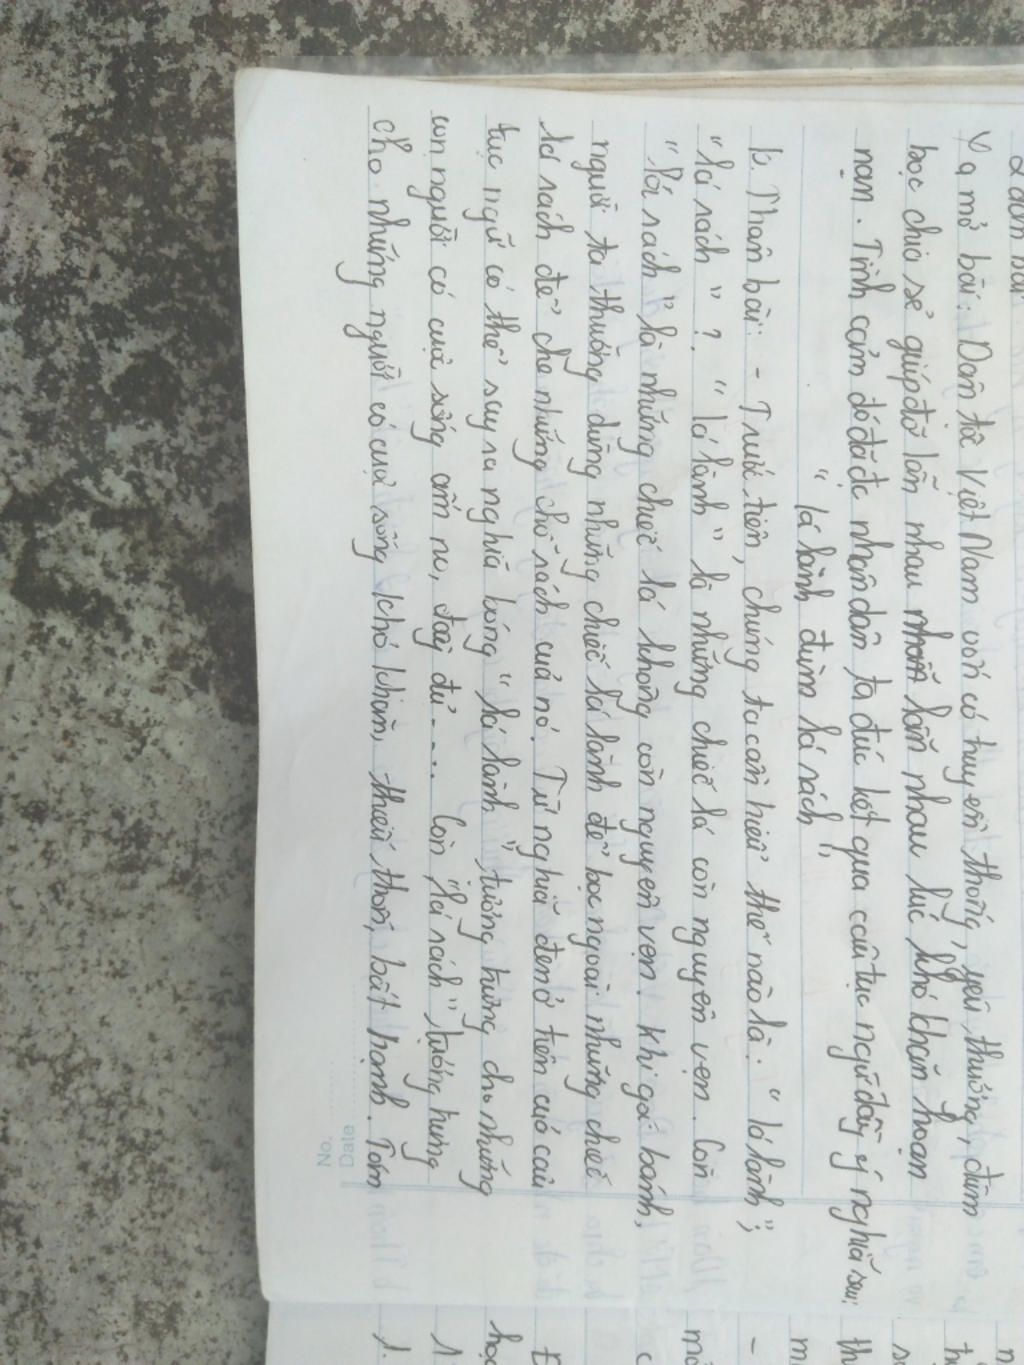 a. mở bài: Dân tộc Việt Nam vốn có truyền thống, yêu, thương, đùm
bọc chia sẻ giúp đỡ lẫn nhau lẫn nhau lúc khó khăn hoạn
nạn. Tình cảm đó đã đc nhân dân ta đúc kết qua câu tục ngữ đầy ý nghĩa sau:
"lá lành đùm lá rách"
b. Thân bài: - Trước tiên, chúng ta cần hiểu thế nào là: "lá lành";
"lá rách"? "lá lành" là những chiếc lá còn nguyên vẹn. Còn
"lá rách" là những chiếc lá không còn nguyên vẹn. Khi gói bánh,
người ta thường dùng những chiếc lá lành để bọc ngoài những chiếc
lá rách để che những chỗ rách của nó. Từ nghĩa đen ở trên của câu
tục ngữ có thể suy ra nghĩa bóng "lá lành" tượng trưng cho những
con người có cuộc sống ấm no, đầy đủ.... Còn "lá rách" tượng trưng
cho những người có cuộc sống khó khăn, thiếu thốn, bất hạnh. Tóm
No.
Date